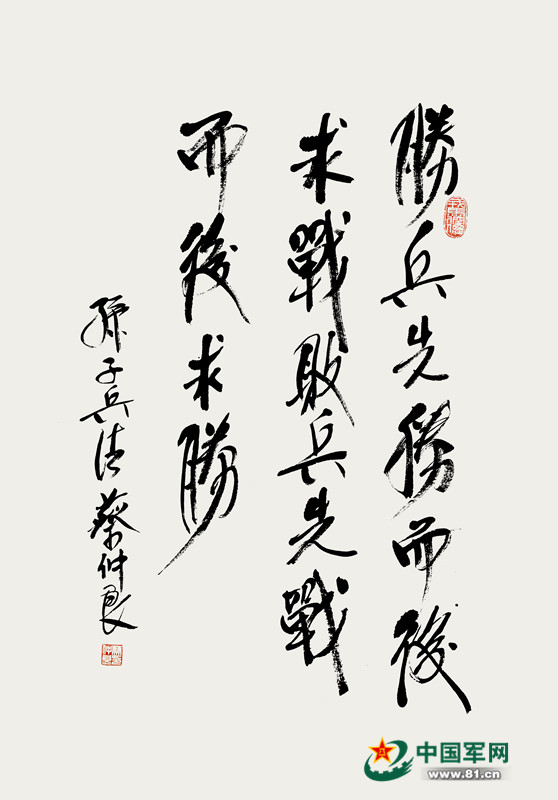 勝兵先勝而後
求戰敗兵先戰
而後求勝
孫子兵法 蔡仲良
中国军网
www.81.cn